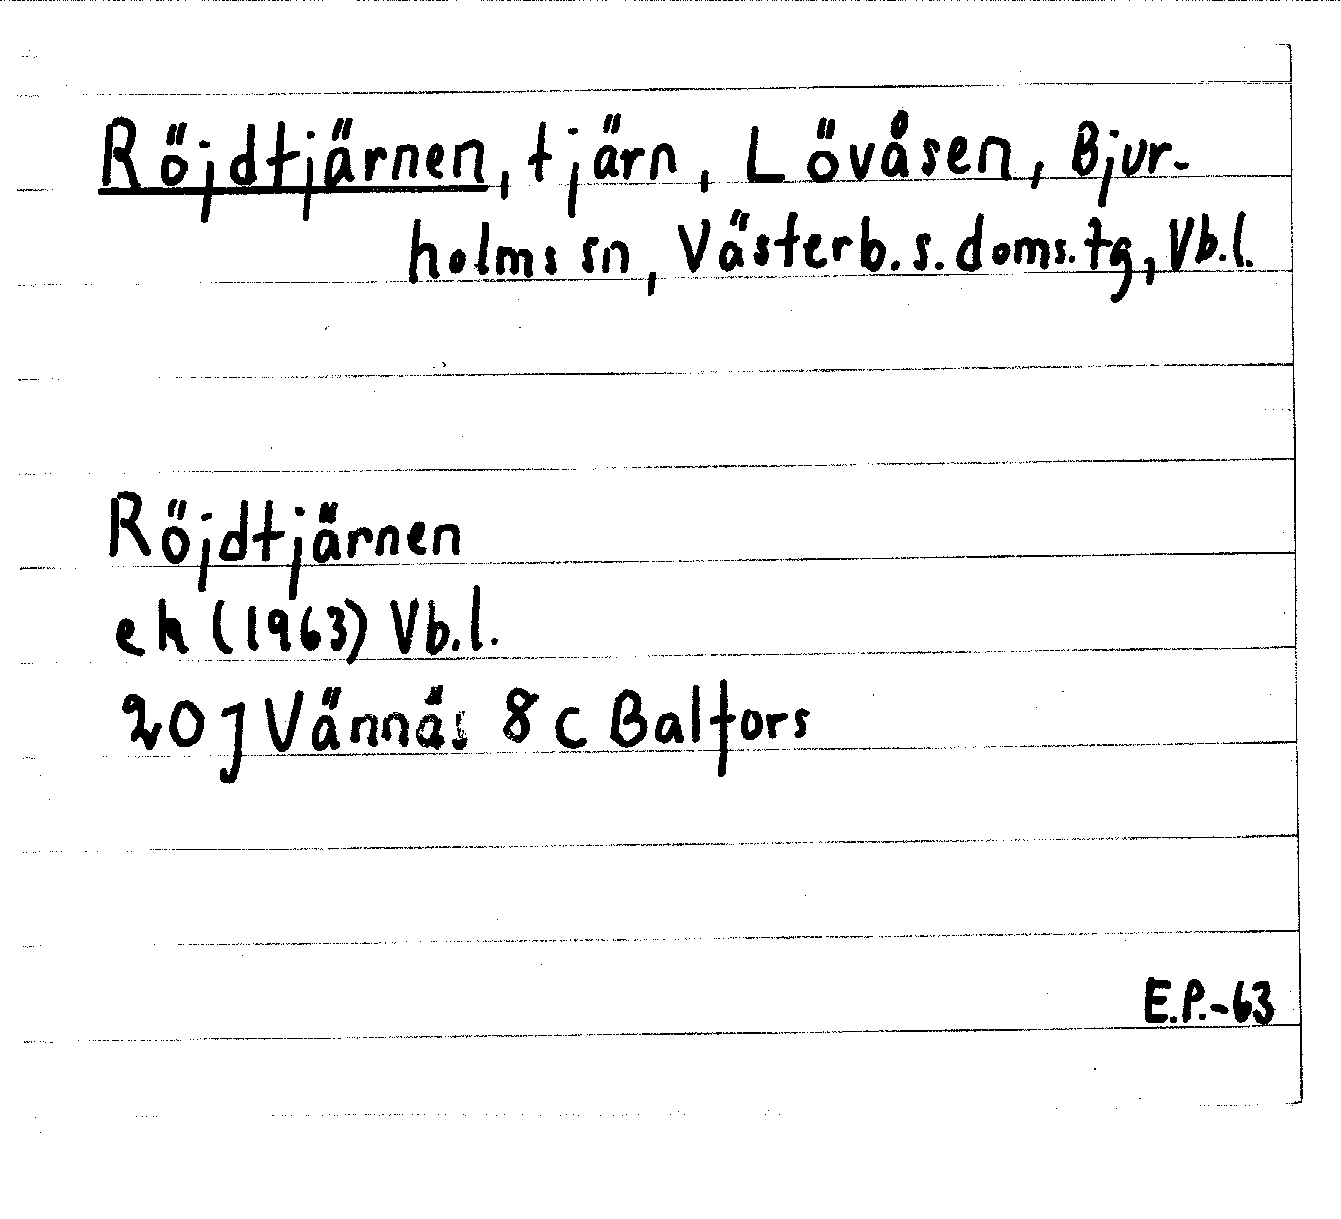 Röjdtjärnen, tjärn, Lövåsen, Bjur-
holms sn, Västerb.s.doms.tg, Vb.l.
Röjdtjärnen
ek (1963) Vb.l.
20 J Vännäs 8 c Balfors
E.P.-63